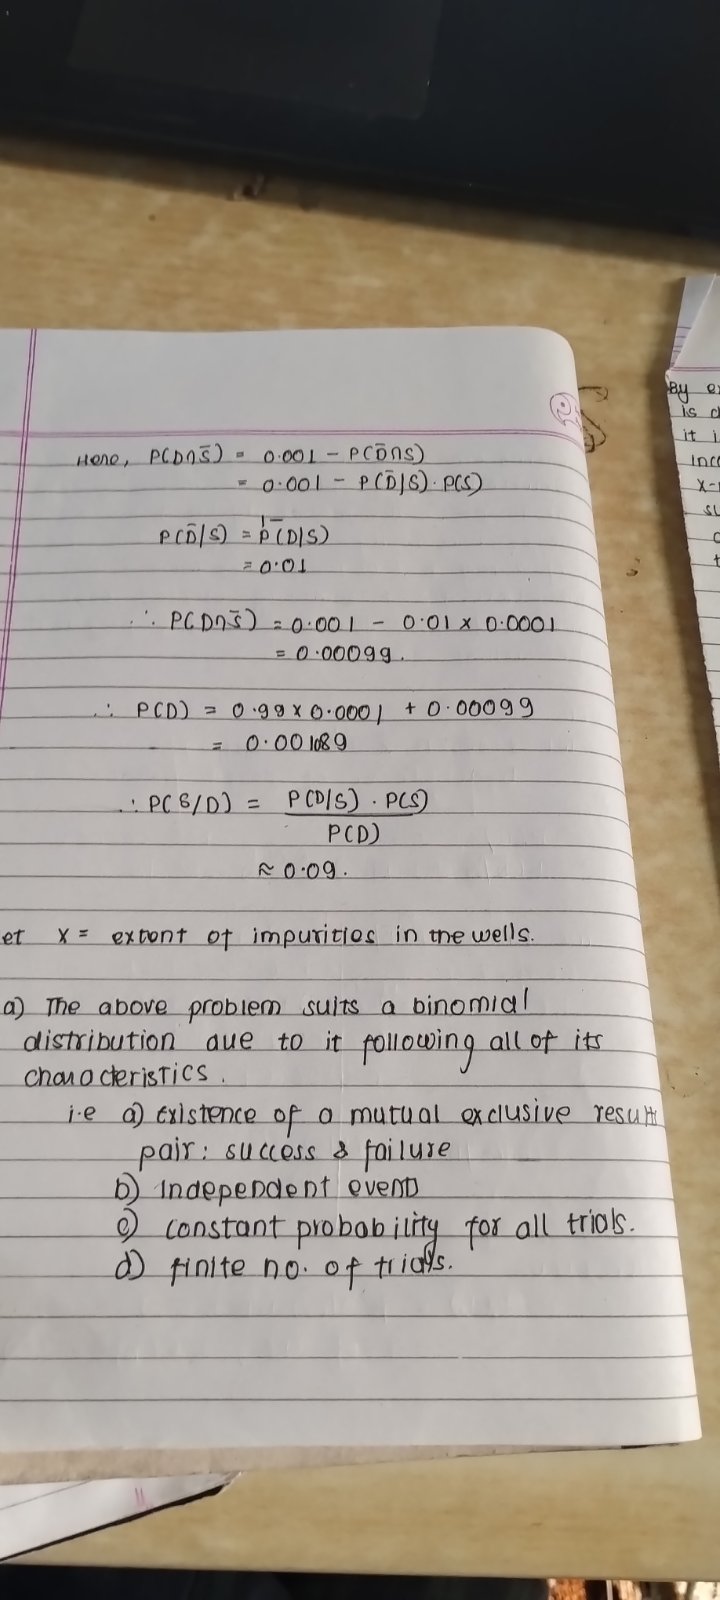 Here, P(D∩S̄) = 0.001 - P(D̄∩S)
= 0.001 - P(D̄|S)·P(S)
P(D̄|S) = 1-P(D|S)
= 0.01
∴ P(D∩S̄) = 0.001 - 0.01 x 0.0001
= 0.00099.
∴ P(D) = 0.99 x 0.0001 + 0.00099
= 0.001089
∴ P(S/D) = P(D|S) . P(S)
P(D)
≈ 0.09.
et x = extent of impurities in the wells.
a) The above problem suits a binomial
distribution due to it following all of its
characteristics.
i.e a) existence of a mutual exclusive result
pair: success & failure
b) independent event
c) constant probability for all trials.
d) finite no. of trials.
By
is
it
x-